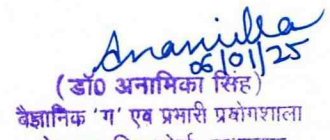 Anamika
06/01/25
(डॉ0 अनामिका सिंह)
वैज्ञानिक 'ग' एवं प्रभारी प्रयोगशाला